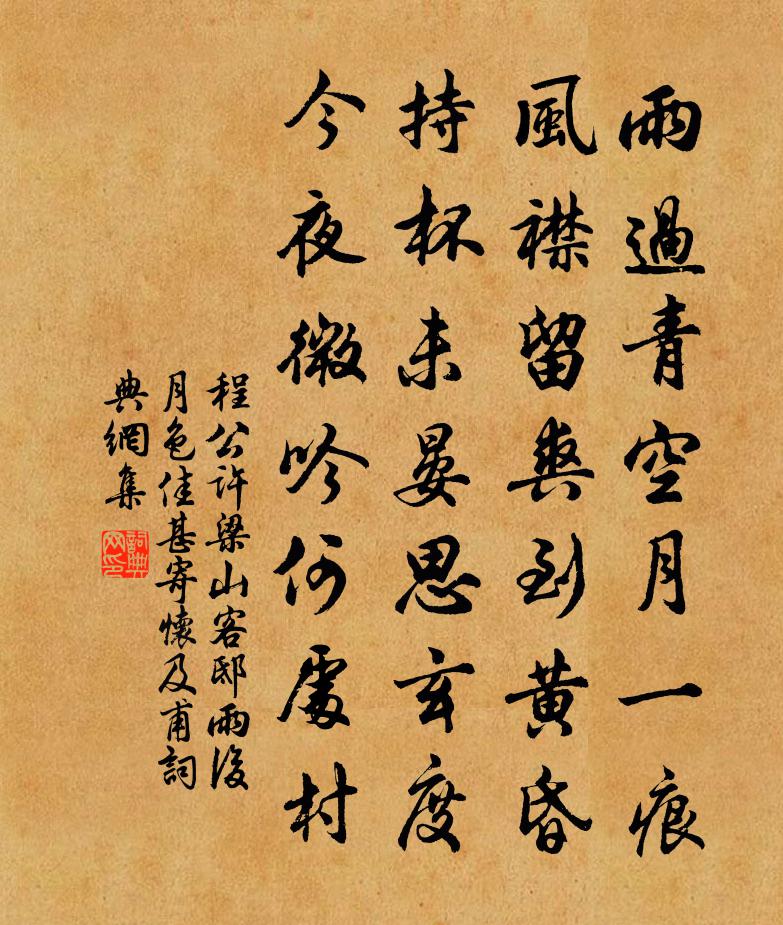 雨過青空月一痕
風襟留爽到黃昏
持杯未晏思玄度
今夜微吟何處村
程公許梁山客邸雨後
月色佳甚寄懷及甫詞
典網集
詞典
网印